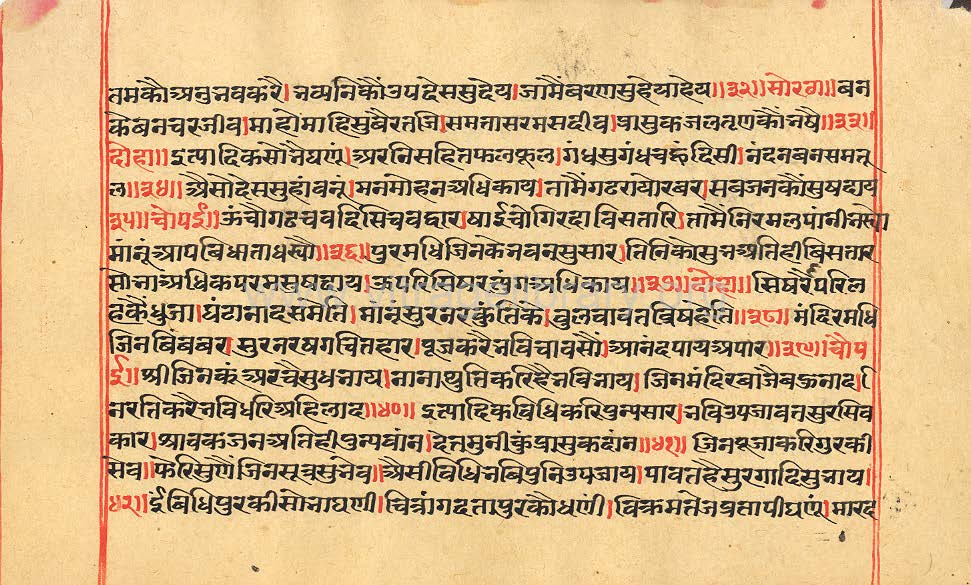 तमकौ अनुभव करै। भव्यनिकौं उपदेस सु देय। जामैं वरण सु हेयादेय॥३२॥ सोरठा॥ बन
के बनचर जीव। मांही मांहि सु वैर तजि। समतासरम सदीव। प्रासुक जल तृण कौं भषै॥३३॥
दोहा॥ इत्यादिक सोभै घणूं। अर निसहित फल फूल। गंध सुगंध चहुं दिसी। नंदन बन समतू
ल॥३४॥ अैसो देस सुहांवनूं। मनमोहन अधिकाय। तामैं गढ रायो रबर। सब जन कौं सुषदाय
३५॥ चौपई॥ ऊंचौ गढ चव दिसि चव द्वार। षाई चौगिरदा विसतारि। तामैं निरमल पांनी भस्यो
मांनूं आप बिधाता धस्यौ॥३६॥ पुर मधि जिन के भवन सु सार। तिनिको सुभ अति ही बिसतार
सोभा अधिक परम सुषदाय। ऊपरि सिषर लुंग अधिकाय॥३७॥ दोहा॥ सिषरै परि ल
हकैं धुजा। घंटा नाद समेति। मानूं सुर नर कुं तिके। बुलवावन बिष हेति॥३८॥ मंदिर मधि
जिनबिंब बर। सुर नर षग चित हार। पूज करै भवि चाव सौं। आनंद पाय अपार॥३९॥ चौप
ई॥ श्री जिन कूं अरचै सुध भाय। नाना थुति करिहै भवि भाय। जिन मंदिर बाजै बहु नाद।
नरति करै भवि धरि अहिलाद॥४०॥ इत्यादिक विधि करि पुन्य सार। भवि उपजावत सुरसिव
कार। श्रावक जन अति ही पुन्यवांन। देत मुनी कुं प्रासुक दांन॥४१॥ जिन पूजा करि गुर की
सेव॥ फेरि सुणैं जिनसूत्र सुभेव॥ अैसी विधि भवि पुनि उपजाय। पावत है सुरगादि सुभाय।
४२॥ ई बिधि पुर की सोभा घणी। चित्रांगद ता पुर कौ धणी। विक्रमतेज प्रतापी घणूं। मारद
www.vitragelibrary.org